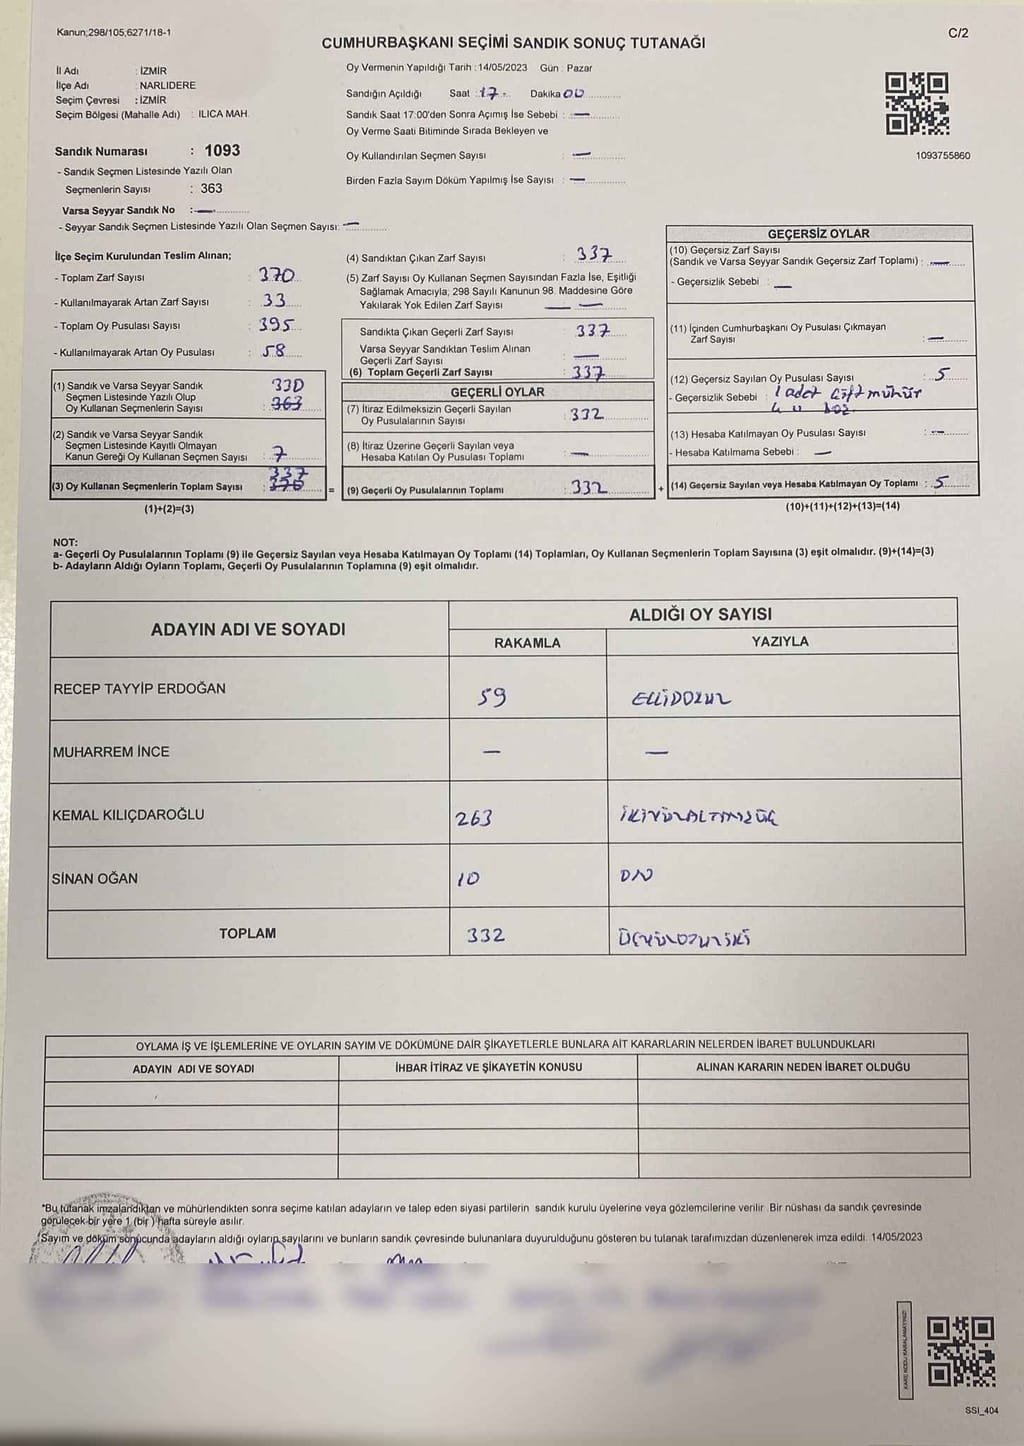 Kanun;298/105;6271/18-1
C/2
CUMHURBAŞKANI SEÇİMİ SANDIK SONUÇ TUTANAĞI
İl Adı : İZMİR
İlçe Adı : NARLIDERE
Seçim Çevresi : İZMİR
Seçim Bölgesi (Mahalle Adı) : ILICA MAH.
Sandık Numarası : 1093
- Sandık Seçmen Listesinde Yazılı Olan
Seçmenlerin Sayısı : 363
Varsa Seyyar Sandık No : —
- Seyyar Sandık Seçmen Listesinde Yazılı Olan Seçmen Sayısı: —
Oy Vermenin Yapıldığı Tarih : 14/05/2023 Gün : Pazar
Sandığın Açıldığı Saat : 17 Dakika 00
Sandık Saat 17:00'den Sonra Açımış İse Sebebi : —
Oy Verme Saati Bitiminde Sırada Bekleyen ve
Oy Kullandırılan Seçmen Sayısı : —
Birden Fazla Sayım Döküm Yapılmış İse Sayısı : —
1093755860
İlçe Seçim Kurulundan Teslim Alınan;
- Toplam Zarf Sayısı : 370
- Kullanılmayarak Artan Zarf Sayısı : 33
- Toplam Oy Pusulası Sayısı : 395
- Kullanılmayarak Artan Oy Pusulası : 58
(1) Sandık ve Varsa Seyyar Sandık
Seçmen Listesinde Yazılı Olup
Oy Kullanan Seçmenlerin Sayısı : 330 363
(2) Sandık ve Varsa Seyyar Sandık
Seçmen Listesinde Kayıtlı Olmayan
Kanun Gereği Oy Kullanan Seçmen Sayısı : 7
(3) Oy Kullanan Seçmenlerin Toplam Sayısı : 337
(1)+(2)=(3)
(4) Sandıktan Çıkan Zarf Sayısı : 337
(5) Zarf Sayısı Oy Kullanan Seçmen Sayısından Fazla İse, Eşitliği
Sağlamak Amacıyla; 298 Sayılı Kanunun 98. Maddesine Göre
Yakılarak Yok Edilen Zarf Sayısı — —
Sandıkta Çıkan Geçerli Zarf Sayısı : 337
Varsa Seyyar Sandıktan Teslim Alınan
Geçerli Zarf Sayısı : —
(6) Toplam Geçerli Zarf Sayısı : 337
GEÇERLİ OYLAR
(7) İtiraz Edilmeksizin Geçerli Sayılan
Oy Pusulalarının Sayısı : 332
(8) İtiraz Üzerine Geçerli Sayılan veya
Hesaba Katılan Oy Pusulası Toplamı : —
= (9) Geçerli Oy Pusulalarının Toplamı : 332
GEÇERSİZ OYLAR
(10) Geçersiz Zarf Sayısı
(Sandık ve Varsa Seyyar Sandık Geçersiz Zarf Toplamı) : —
- Geçersizlik Sebebi : —
(11) İçinden Cumhurbaşkanı Oy Pusulası Çıkmayan
Zarf Sayısı : —
(12) Geçersiz Sayılan Oy Pusulası Sayısı : 5
- Geçersizlik Sebebi : 1 adet çift mühür
4
(13) Hesaba Katılmayan Oy Pusulası Sayısı : —
- Hesaba Katılmama Sebebi : —
+ (14) Geçersiz Sayılan veya Hesaba Katılmayan Oy Toplamı : 5
(10)+(11)+(12)+(13)=(14)
NOT:
a- Geçerli Oy Pusulalarının Toplamı (9) ile Geçersiz Sayılan veya Hesaba Katılmayan Oy Toplamı (14) Toplamları, Oy Kullanan Seçmenlerin Toplam Sayısına (3) eşit olmalıdır. (9)+(14)=(3)
b- Adayların Aldığı Oyların Toplamı, Geçerli Oy Pusulalarının Toplamına (9) eşit olmalıdır.
ADAYIN ADI VE SOYADI ALDIĞI OY SAYISI
RAKAMLA YAZIYLA
RECEP TAYYİP ERDOĞAN 59 ELLİDOKUZ
MUHARREM İNCE — —
KEMAL KILIÇDAROĞLU 263 İKİYÜZALTMIŞÜÇ
SİNAN OĞAN 10 ON
TOPLAM 332 ÜÇYÜZOTUZİKİ
OYLAMA İŞ VE İŞLEMLERİNE VE OYLARIN SAYIM VE DÖKÜMÜNE DAİR ŞİKAYETLERLE BUNLARA AİT KARARLARIN NELERDEN İBARET BULUNDUKLARI
ADAYIN ADI VE SOYADI İHBAR İTİRAZ VE ŞİKAYETİN KONUSU ALINAN KARARIN NEDEN İBARET OLDUĞU
*Bu tutanak imzalandıktan ve mühürlendikten sonra seçime katılan adayların ve talep eden siyasi partilerin sandık kurulu üyelerine veya gözlemcilerine verilir. Bir nüshası da sandık çevresinde
görülecek bir yere 1 (bir) hafta süreyle asılır.
Sayım ve döküm sonucunda adayların aldığı oyların sayılarını ve bunların sandık çevresinde bulunanlara duyurulduğunu gösteren bu tutanak tarafımızdan düzenlenerek imza edildi. 14/05/2023
KARE KODU KARALAMAYINIZ!
SSI_404